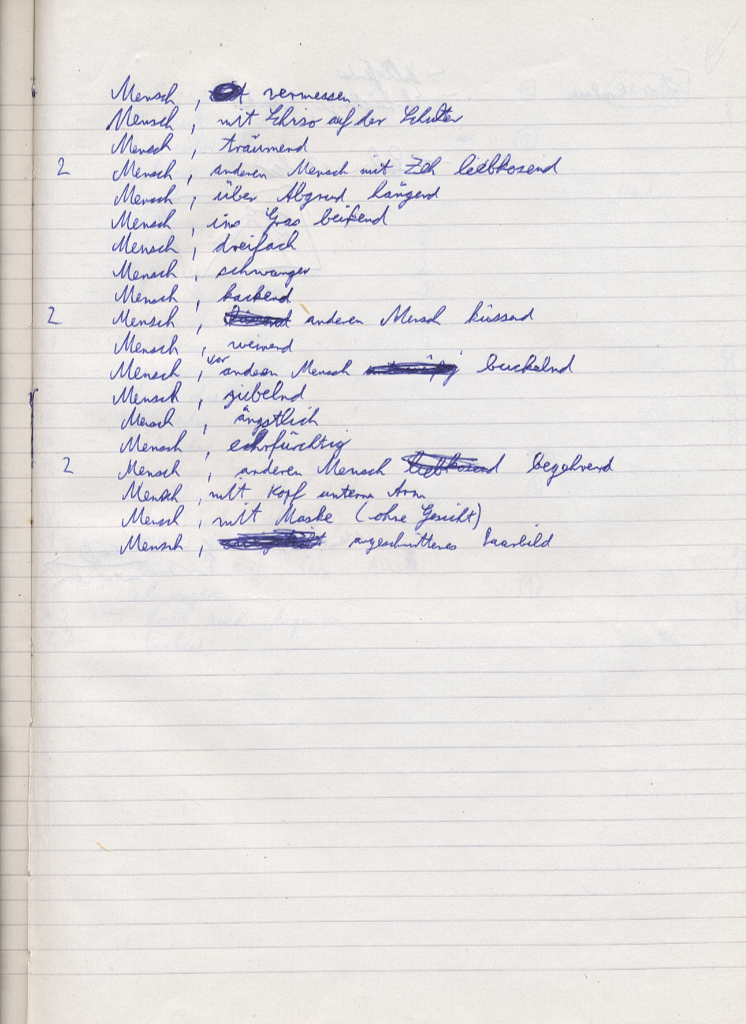 Mensch, vermessen
Mensch, mit auf der Schulter
Mensch, träumend
2 Mensch, anderen Mensch mit Zeh liebkosend
Mensch, über Abgrund hängend
Mensch, ins Gras beißend
Mensch, dreifach
Mensch, schwanger
Mensch, backend
2 Mensch, anderen Mensch küssend
Mensch, weinend
Mensch, vor anderen Mensch buckelnd
Mensch, jubelnd
Mensch, ängstlich
Mensch, ehrfürchtig
2 Mensch, anderen Mensch liebkosend begehrend
Mensch, mit Kopf unterm Arm
Mensch, mit Maske (ohne Gesicht)
Mensch, angeschnittenes